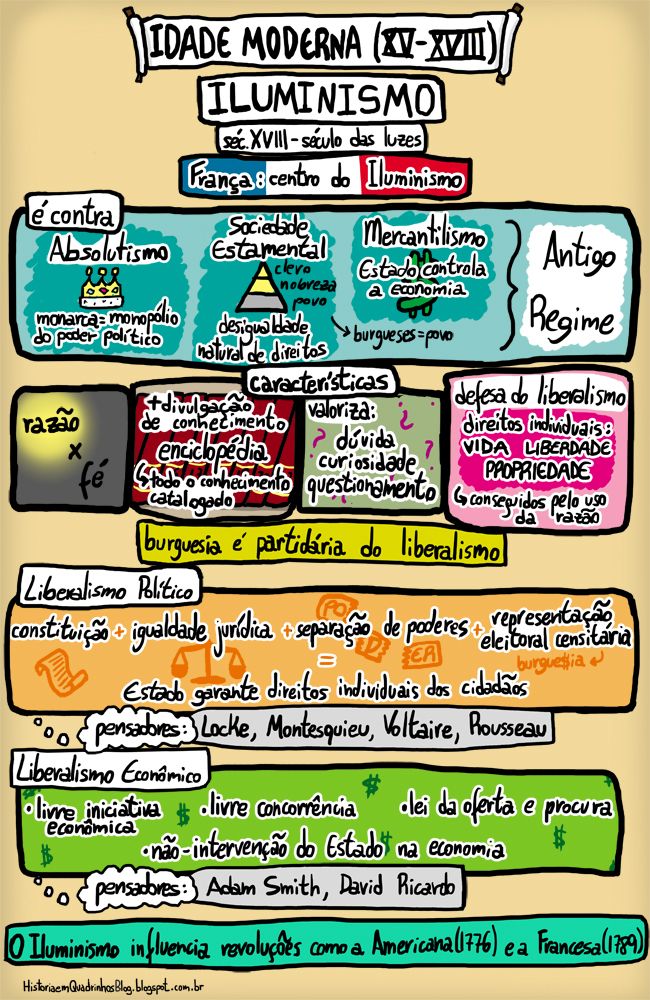 IDADE MODERNA (XV-XVIII)
ILUMINISMO
séc. XVIII - século das luzes
França: centro do Iluminismo
é contra
Absolutismo
monarca = monopólio
do poder político
Sociedade
Estamental
clero
nobreza
povo
desigualdade
natural de direitos
Mercantilismo
Estado controla
a economia
↳ burgueses = povo
Antigo
Regime
características
razão
x
fé
+ divulgação
de conhecimento
enciclopédia
↳ todo o conhecimento
catalogado
valoriza:
dúvida
curiosidade
questionamento
defesa do liberalismo
direitos individuais:
VIDA LIBERDADE
PROPRIEDADE
↳ conseguidos pelo uso
da razão
burguesia é partidária do liberalismo
Liberalismo Político
constituição + igualdade jurídica + separação de poderes + representação
eleitoral censitária
PO
D
ER
burgue$ia
=
Estado garante direitos individuais dos cidadãos
pensadores: Locke, Montesquieu, Voltaire, Rousseau
Liberalismo Econômico
• livre iniciativa
econômica
• livre concorrência
• lei da oferta e procura
• não-intervenção do Estado na economia
pensadores: Adam Smith, David Ricardo
O Iluminismo influencia revoluções como a Americana (1776) e a Francesa (1789)
HistoriaemQuadrinhosBlog.blogspot.com.br